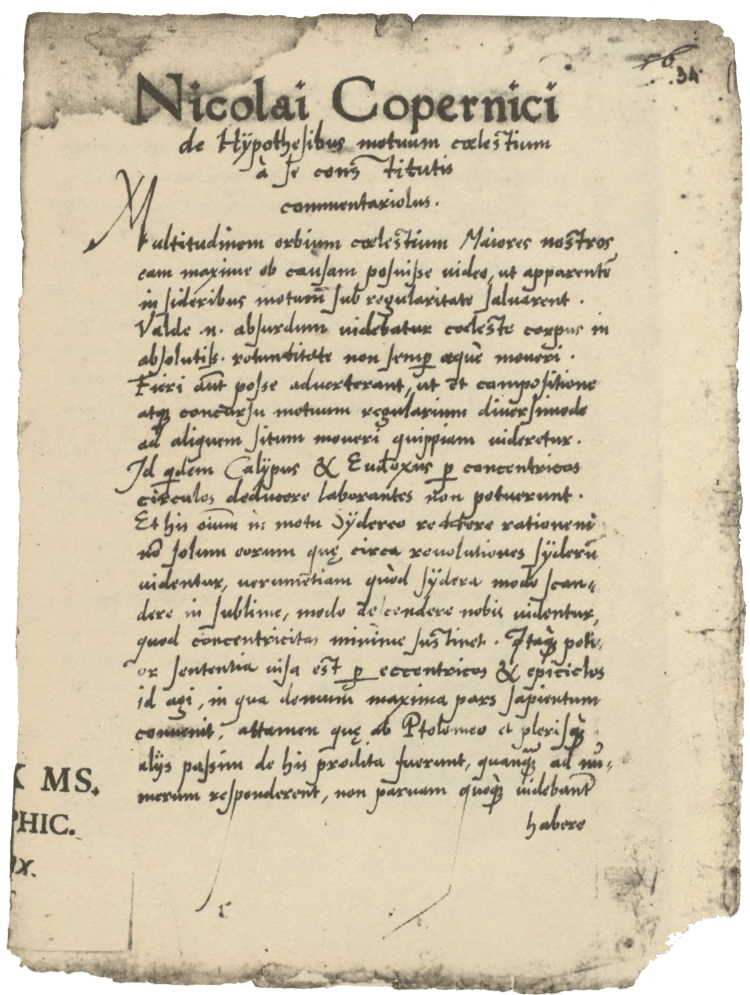 34
Nicolai Copernici
de Hÿpothesibus motuum cœlestium
à se constitutis
commentariolus.
Multitudinem orbium cœlestium Maiores nostros
eam maxime ob causam posuisse uideo, ut apparentē
in sideribus motum sub regularitate saluarent .
Valde .n. absurdum uidebatur cœleste corpus in
absolutiss. rotunditate non semp æquè moveri .
Fieri aūt posse aduerterant, ut et compositione
atq concursu motuum regularium diuersimode
ad aliquem situm moueri quippiam uideretur.
Id qdem Calÿpus & Eudoxus p concentricos
circulos deducere laborantes non potuerunt .
Et his oium in motu Sÿdereo reddere rationem
nō solum eorum quę circa reuolutiones sÿderū
uidentur, uerumetiam quòd sÿdera modo scan-
dere in sublime, modo descendere nobis uidentur,
quod concentricitas minime sustinet . Itaq poti-
or sententia uisa est p eccentricos & epiciclos
id agi, in qua demum maxima pars sapientum
conuenit, attamen quę ab Ptolomeo et plerisq
alijs passim de his prodita fuerunt, quanq ad nu-
merum responderent, non paruam quoq uidebant
habere
K MS.
PHIC.
IX.